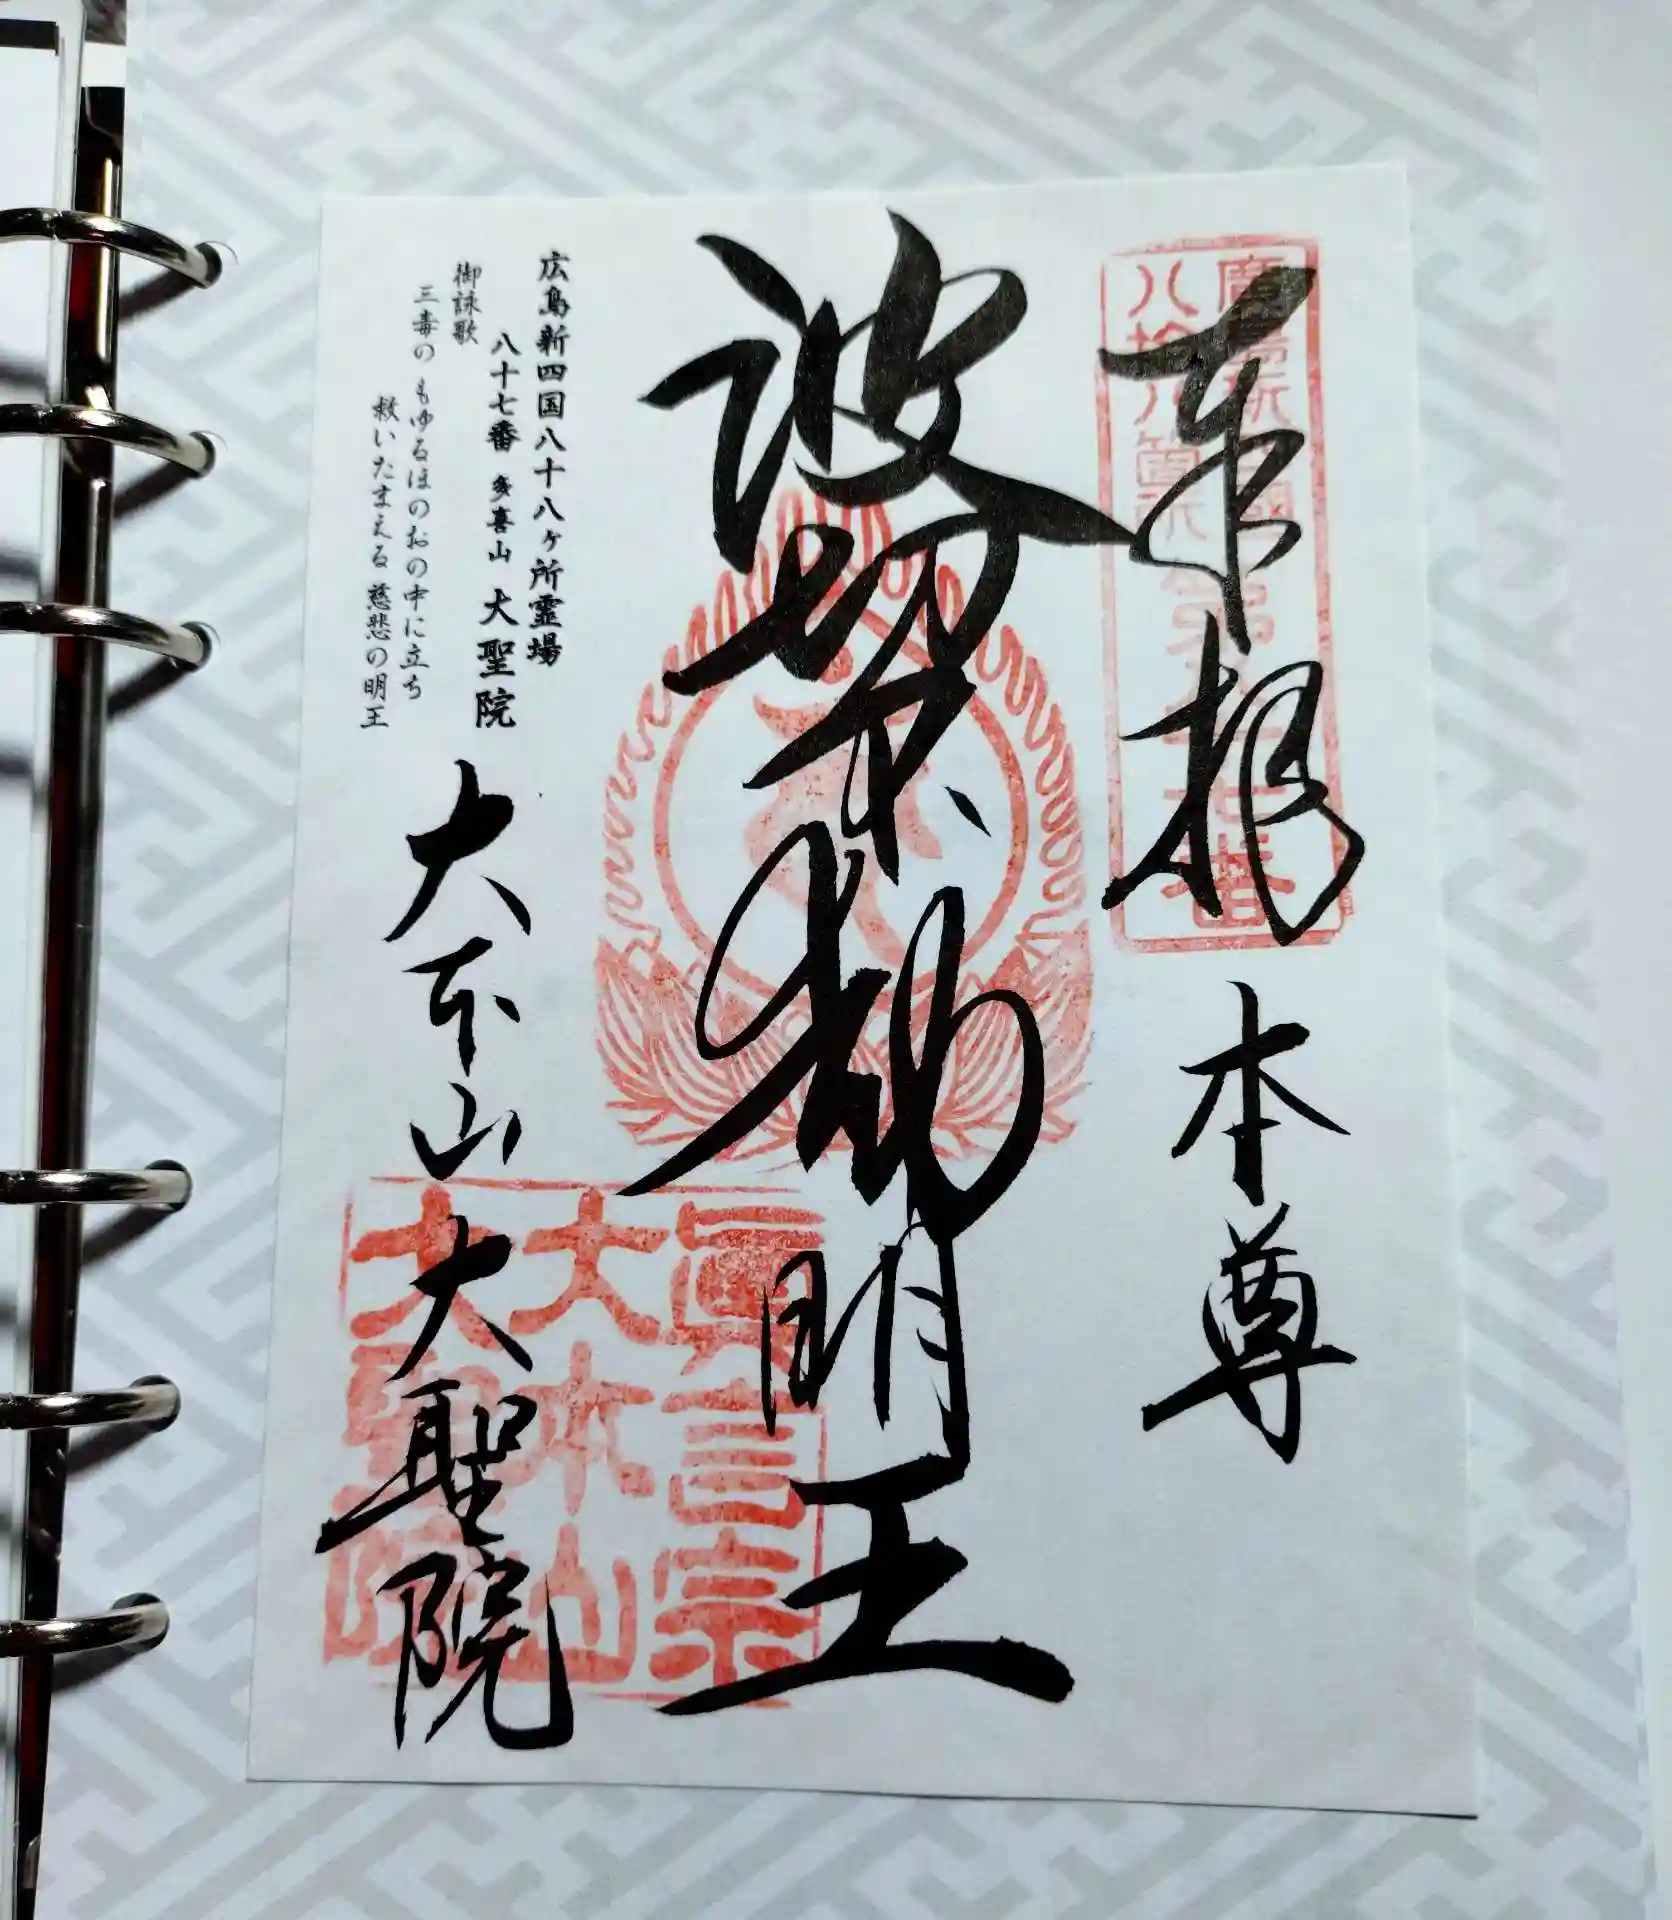 廣島新四國
八拾八箇所
第八十七番
奉拝 本尊
波切不動明王
広島新四国八十八ヶ所霊場
八十七番 多喜山 大聖院
御詠歌
三毒の もゆるほのおの中に立ち
救いたまえる 慈悲の明王
大本山 大聖院
眞言宗
大本山
大聖院